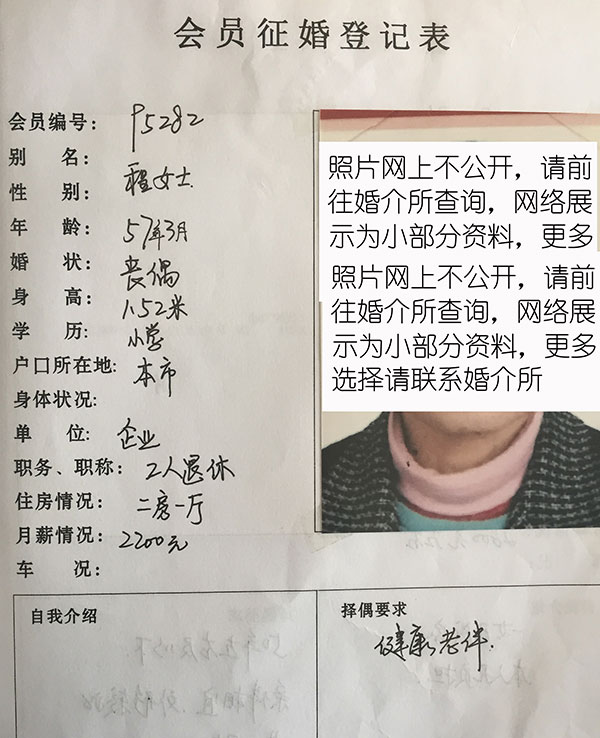 会员征婚登记表
会员编号： P5282
别 名： 程女士
性 别：
年 龄： 57年3月
婚 状： 丧偶
身 高： 1.52米
学 历： 小学
户口所在地： 本市
身体状况:
单 位: 企业
职务、职称： 工人退休
住房情况： 二房一厅
月薪情况： 2200元
车 况：
照片网上不公开，请前
往婚介所查询，网络展
示为小部分资料，更多
照片网上不公开，请前
往婚介所查询，网络展
示为小部分资料，更多
选择请联系婚介所
自我介绍
择偶要求
健康老伴.